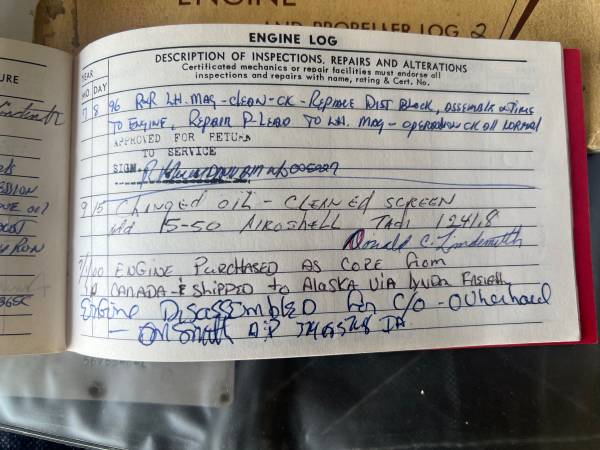 ENGINE
AND PROPELLER LOG 2
ENGINE LOG
DESCRIPTION OF INSPECTIONS, REPAIRS AND ALTERATIONS
Certificated mechanics or repair facilities must endorse all
inspections and repairs with name, rating & Cert. No.
YEAR
MO DAY
URE
7 8 96 R&R L.H. MAG - CLEAN - CK - REPLACE DIST BLOCK, ASSEMBLE & TIME
TO ENGINE, REPAIR P-LEAD TO L.H. MAG - OPERATION CK ALL NORMAL
APPROVED FOR RETURN
TO SERVICE
SIGN.
9 15 CHANGED OIL - CLEANED SCREEN
15-50 AIROSHELL TACH 1241.8
Donald C. Lindsmith
ENGINE PURCHASED AS CORE from
CANADA & SHIPPED to ALASKA VIA LYNDEN
ENGINE DISASSEMBLED for C/O - Overhaul
A&P IA
RUN